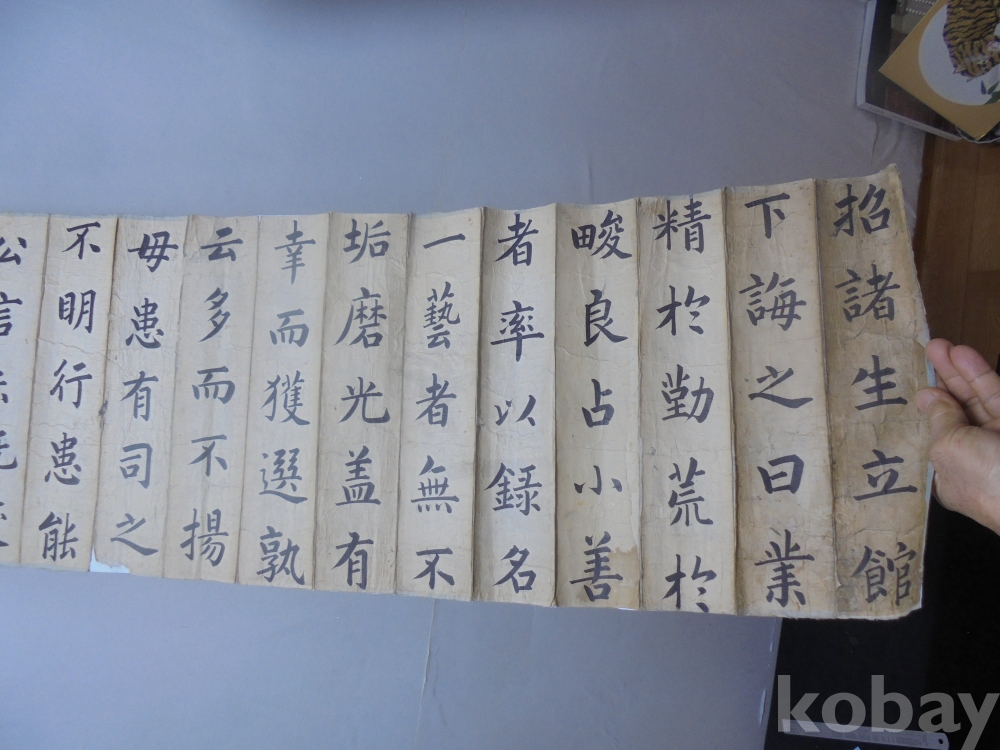 招諸生立館
下誨之曰業
精於勤荒於
畯良占小善
者率以録名
一藝者無不
垢磨光盖有
幸而獲選孰
云多而不揚
毋患有司之
不明行患能
公言
kobay